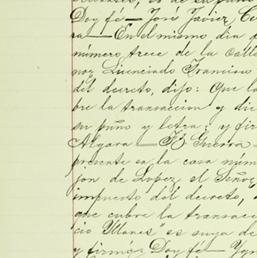 Doy fé — Jon Javier Ce
ra — En el mismo dia
número trece de la Calle
noz Licenciado Francisco
del decreto, dijo: Que la
bre la transaccion y di
su puño y letra; y fir
Algara — F. Guerra
presente en la casa núm
jon de Lopez el Señor
impuesto del decreto,
que cubre la transac
cio Illanes" es suya de
y firmó: Doy fé — Ygn